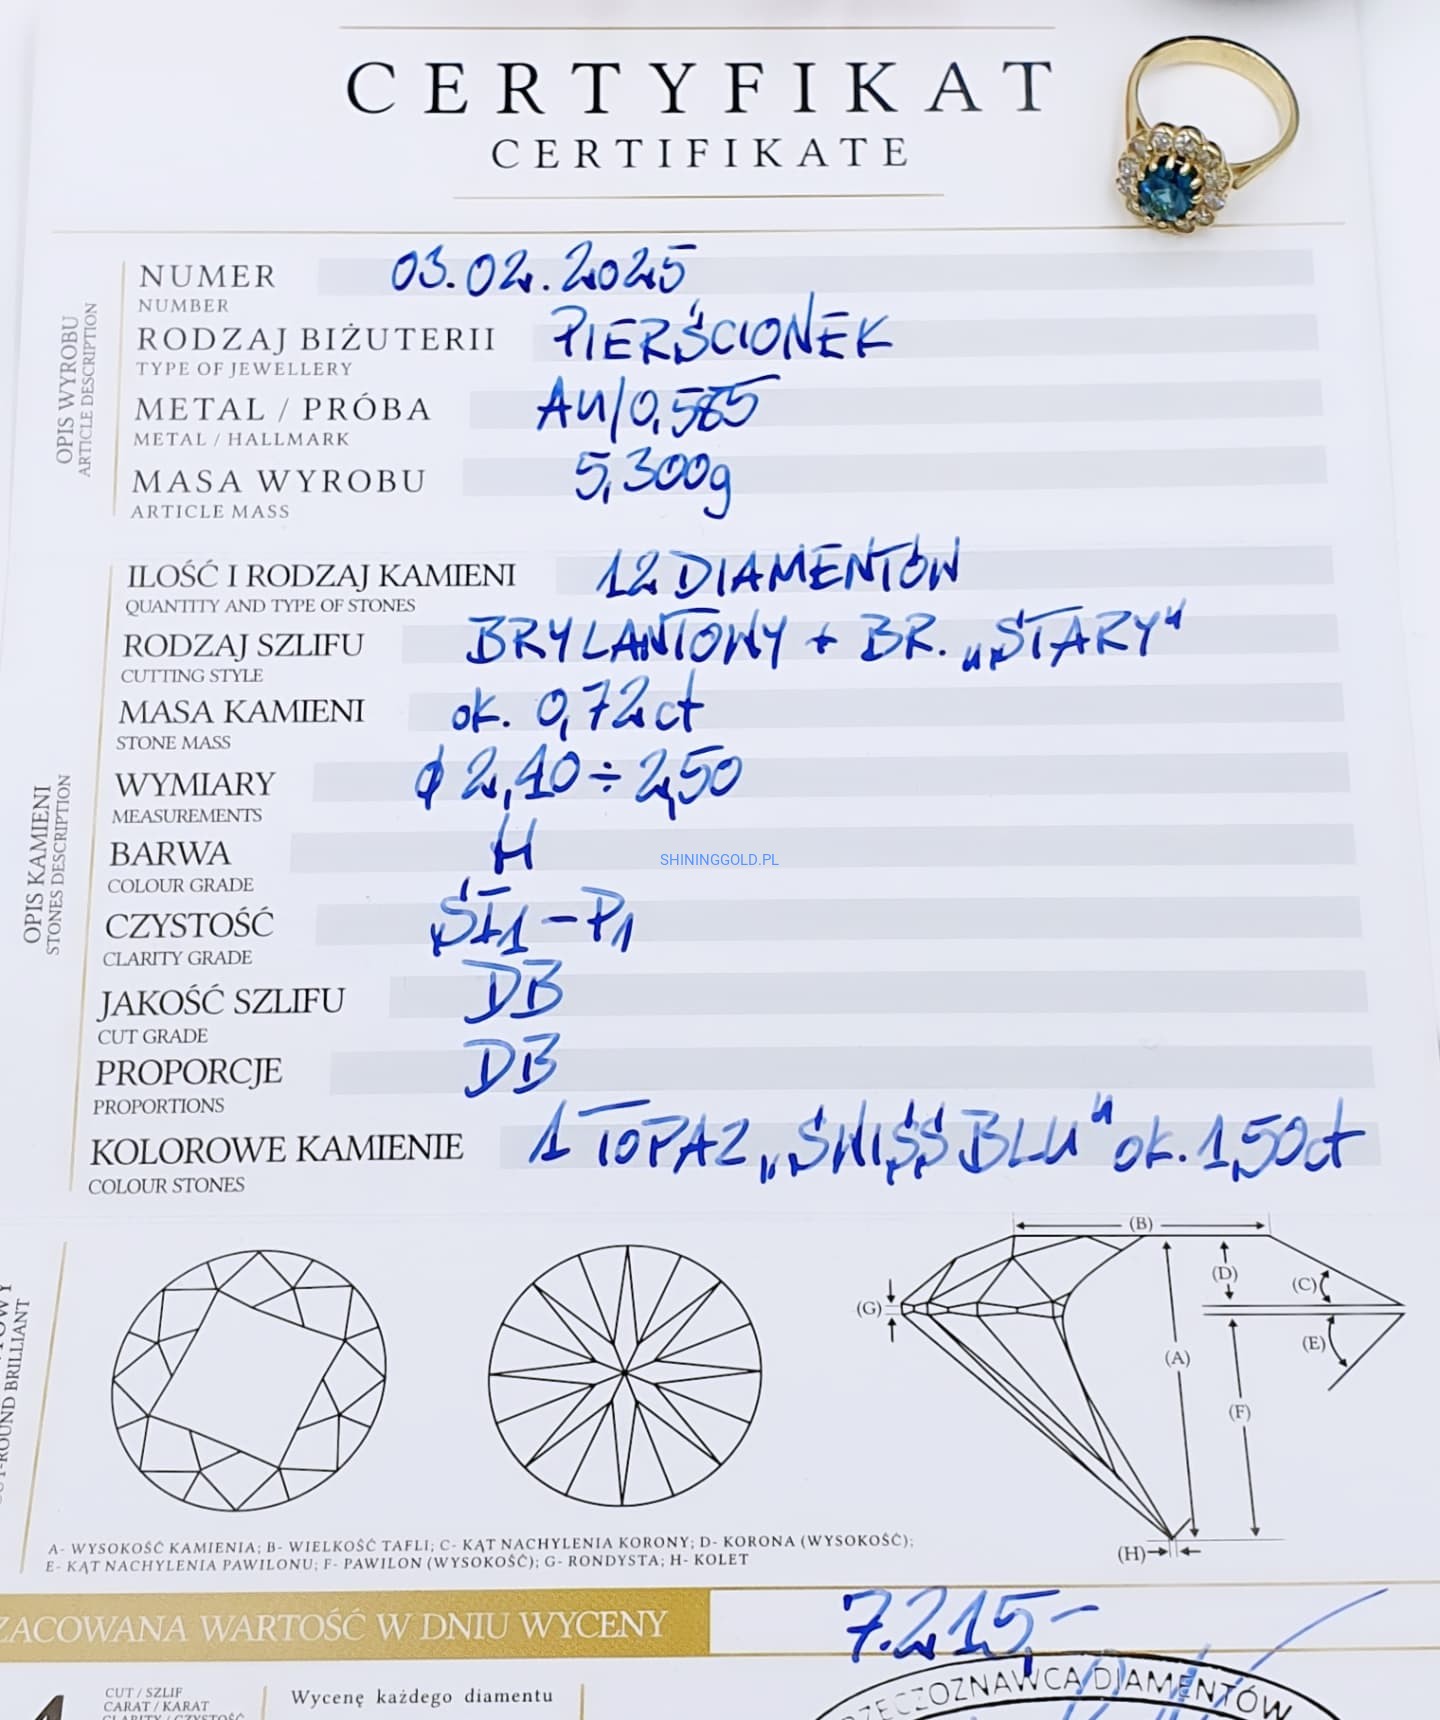 CERTYFIKAT
CERTIFIKATE
OPIS WYROBU
ARTICLE DESCRIPTION
NUMER 03.02.2025
NUMBER
RODZAJ BIŻUTERII PIERŚCIONEK
TYPE OF JEWELLERY
METAL / PRÓBA AU/0,585
METAL / HALLMARK
MASA WYROBU 5,300g
ARTICLE MASS
OPIS KAMIENI
STONES DESCRIPTION
ILOŚĆ I RODZAJ KAMIENI 12 DIAMENTÓW
QUANTITY AND TYPE OF STONES
RODZAJ SZLIFU BRYLANTOWY + BR. „STARY"
CUTTING STYLE
MASA KAMIENI ok. 0,72ct
STONE MASS
WYMIARY ϕ 2,40 ÷ 2,50
MEASUREMENTS
BARWA H
COLOUR GRADE
SHININGGOLD.PL
CZYSTOŚĆ SI1 - P1
CLARITY GRADE
JAKOŚĆ SZLIFU DB
CUT GRADE
PROPORCJE DB
PROPORTIONS
KOLOROWE KAMIENIE 1 TOPAZ „SWISS BLU" ok. 1,50ct
COLOUR STONES
ROUND BRILLIANT
(B)
(D)
(C)
(G)
(E)
(A)
(F)
(H)
A- WYSOKOŚĆ KAMIENIA; B- WIELKOŚĆ TAFLI; C- KĄT NACHYLENIA KORONY; D- KORONA (WYSOKOŚĆ);
E- KĄT NACHYLENIA PAWILONU; F- PAWILON (WYSOKOŚĆ); G- RONDYSTA; H- KOLET
ZACOWANA WARTOŚĆ W DNIU WYCENY 7.215,-
CUT / SZLIF
CARAT / KARAT
CLARITY / CZYSTOŚĆ
Wycenę każdego diamentu
RZECZOZNAWCA DIAMENTÓW